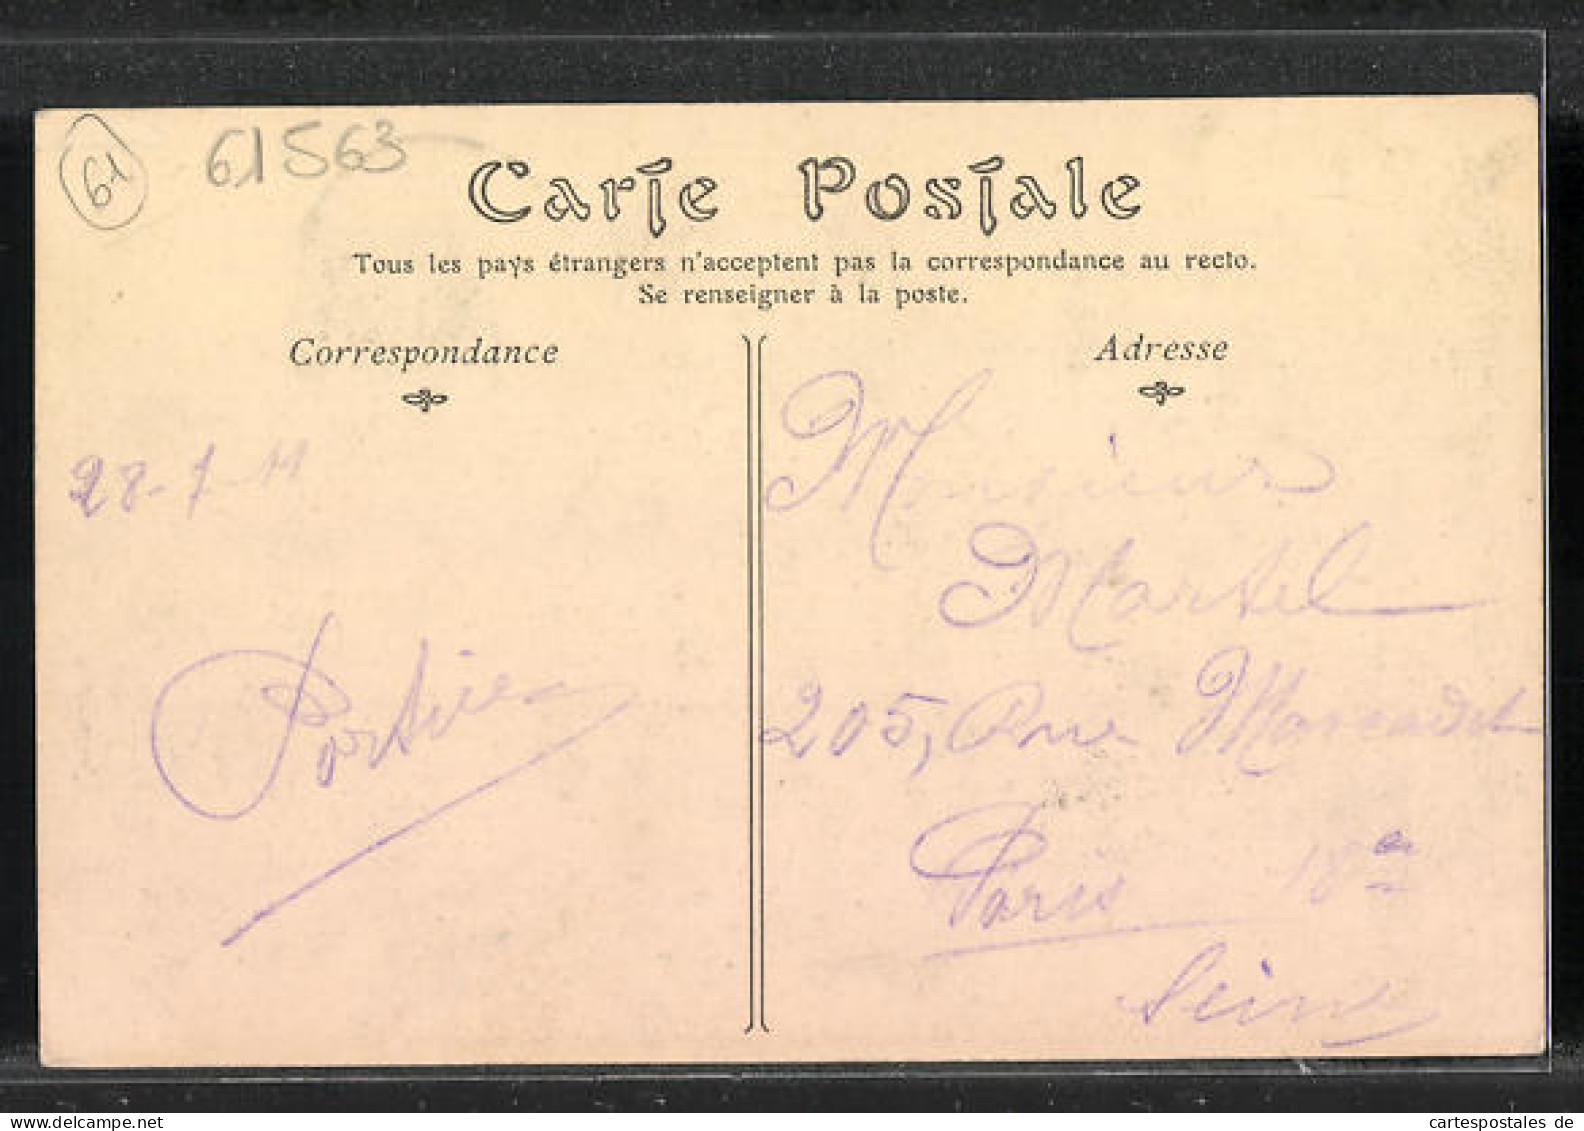 61
61563
Carte Postale
Tous les pays étrangers n'acceptent pas la correspondance au recto.
Se renseigner à la poste.
Correspondance
28-7-11
Portier
Adresse
Monsieur
Martel
205, Rue Marcadet
Paris 18e
Seine
cartespostales de